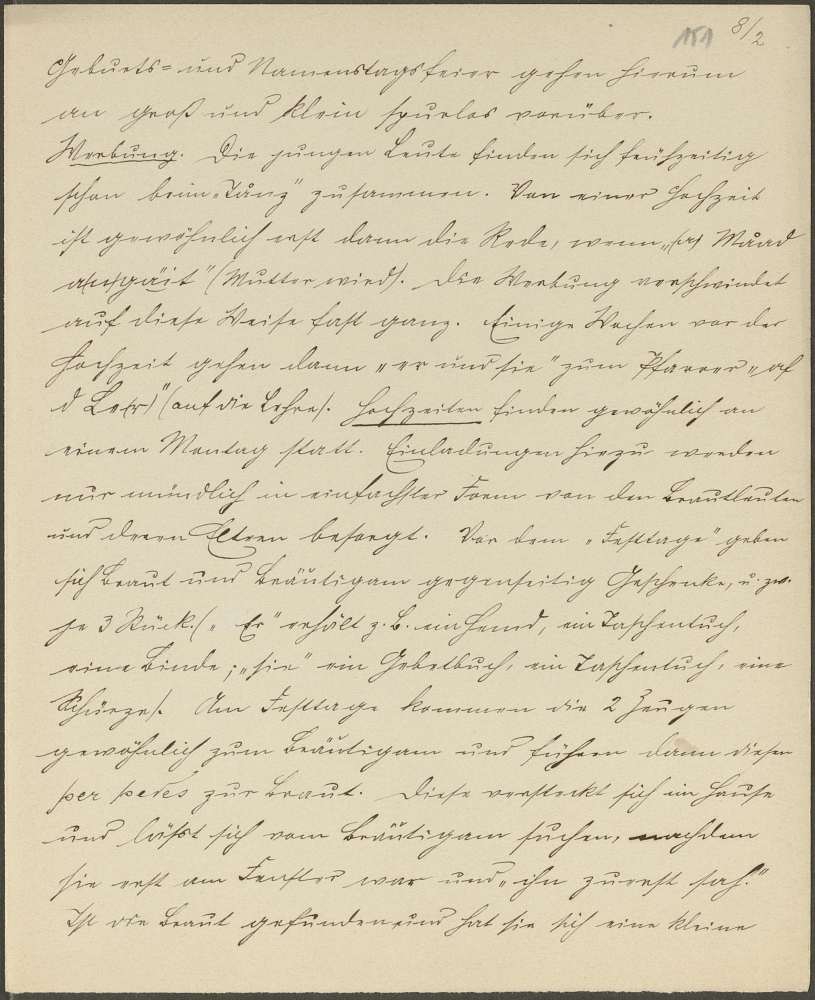 151 8/2
Geburts= und Namenstagsfeier gehen hierum
an groß und klein spurlos vorüber.
Werbung. Die jungen Leute finden sich frühzeitig
schon beim „Tånz" zusammen. Von einer Hochzeit
ist gewöhnlich erst dann die Rede, wenn „(a) Måad
gäit" (Mutter wird). Die Werbung verschwindet
auf diese Weise fast ganz. Einige Wochen vor der
Hochzeit gehen dann „er und sie" zum Pfarrer „af
d Le(r)" (auf die Lehre). Hochzeiten finden gewöhnlich an
einem Montag statt. Einladungen hiezu werden
nur mündlich in einfachster Form von den Brautleuten
und deren Eltren besorgt. Vor dem „Festtage" geben
sich Braut und Bräutigam gegenseitig Geschenke, u. zw.
je 3 Stück. („Er" erhält z. B. ein Hemd, ein Taschentuch,
eine Binde; „sie" ein Gebetbuch, ein Taschentuch, eine
Schürze). Am Festtage kommen die 2 Zeugen
gewöhnlich zum Bräutigam und führen dann diesen
per pedes zur Braut. Diese versteckt sich im Hause
und läßt sich vom Bräutigam suchen, nachdem
sie erst am Fenster war und „ihn zuerst sah."
Ist die Braut gefunden und hat sie sich eine kleine